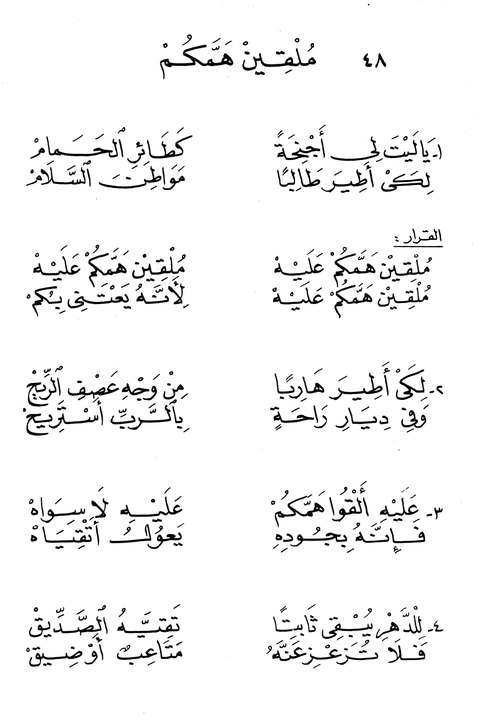 ٤٨ مُلْقِينْ هَمَّكُمْ
١ـ يَا لَيْتَ لِي أَجْنِحَةً كَطَائِرِ الْحَمَامْ
لِكَيْ أَطِيرَ طَالِبًا مَوَاطِنَ السَّلَامْ
القرار:
مُلْقِينْ هَمَّكُمْ عَلَيْهْ مُلْقِينْ هَمَّكُمْ عَلَيْهْ
مُلْقِينْ هَمَّكُمْ عَلَيْهْ لِأَنَّهُ يَعْتَنِي بِكُمْ
٢ـ لِكَيْ أَطِيرَ هَارِبًا مِنْ وَجْهِ عَصْفِ الرِّيحْ
وَفِي دِيَارِ رَاحَةٍ بِالرَّبِّ أَسْتَرِيحْ
٣ـ عَلَيْهِ أَلْقُوا هَمَّكُمْ عَلَيْهِ لَا سِوَاهْ
فَإِنَّهُ بِجُودِهِ يَعُولُ أَتْقِيَاهْ
٤ـ لِلدَّهْرِ يُبْقِي ثَابِتًا تَقِيَّهُ الصِّدِّيقْ
فَلَا تُزَعْزِعَنَّهُ مَتَاعِبٌ أَوْ ضِيقْ